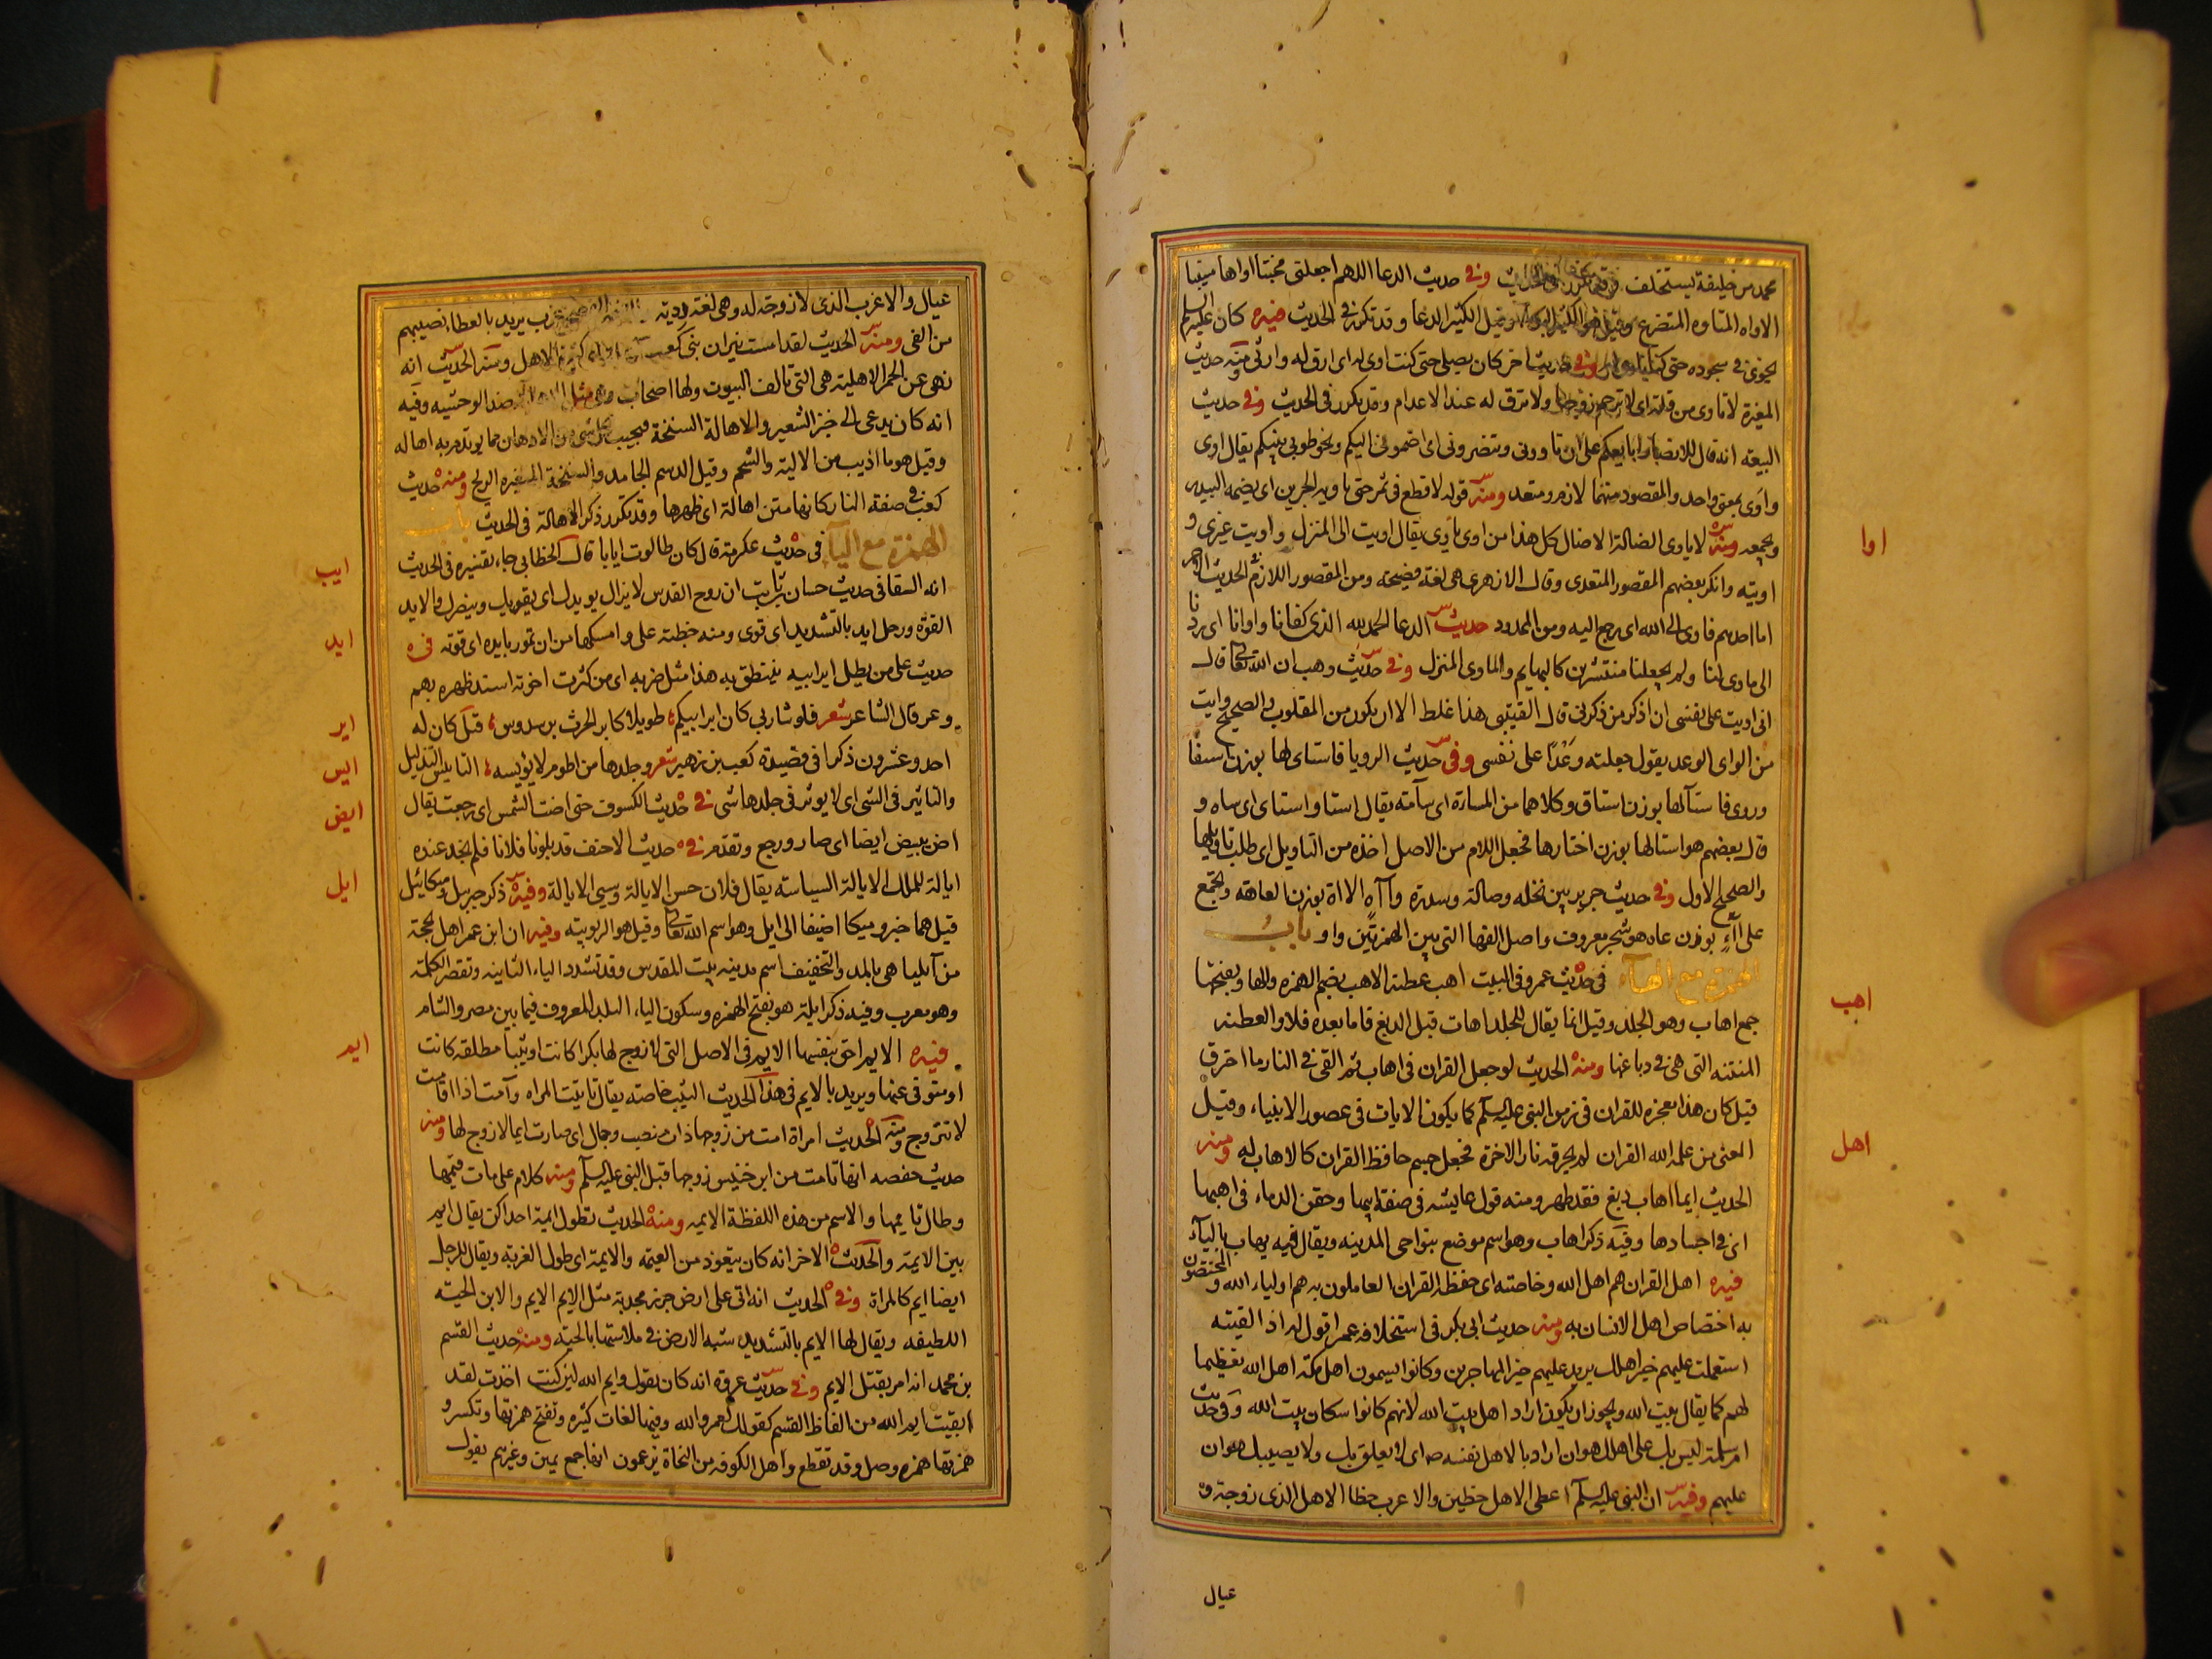 محمد من خليفة يستخلف وفي حديث الدعا اللهم اجعلني مخبتا اواها منيبا
الاواه المتاوه المتضرع وقيل هو الكثير البكاء وقيل الكثير الدعا وقد تكرر في الحديث فيه كان عليه السلم
يخوي في سجوده حتى كنا ناوي له وفي حديث اخر كان يصلي حتى كنت اوي له اي ارق له وارثي ومنه حديث
المغيرة لا تاوي من قلة اي لا ترحم زوجها ولا ترق له عند الاعدام وقد تكرر في الحديث وفي حديث
البيعه انه قال للانصار ابايعكم على ان تاووني وتنصروني اي تضموني اليكم وتحوطوني بينكم يقال اوى
واوى بمعنى واحد والمقصود منهما لازم ومتعد ومنه قوله لا قطع في ثمر حتى ياويه الجرين اي يضمه البيدر
ويجمعه ومنه لا ياوي الضالة الا ضال كل هذا من اوى ياوي يقال اويت الى المنزل واويت غيري و
اويته وانكر بعضهم المقصور المتعدي وقال الازهري هي لغة فصيحة ومن المقصور اللازم الحديث الاخر
اوا
اما احدهم فاوى الى الله اي رجع اليه ومن الممدود حديث الدعا الحمد لله الذي كفانا واوانا اي ردنا
الى ماوى لنا ولم يجعلنا منتشرين كالبهايم والماوى المنزل وفي حديث وهب ان الله تعالى قال
اني اويت على نفسي ان اذكر من ذكرني قال القيتبي هذا غلط الا ان يكون من المقلوب والصحيح وايت
من الواي الوعد يقول جعلته وعدا على نفسي وفي حديث الرويا فاستاى لها بوزن استقا
وروي فاستآلها بوزن استاق وكلاهما من المساءة اي ساءته يقال استا واستاى اي ساه و
قال بعضهم هو استالها بوزن اختارها فجعل اللام من الاصل اخذه من التاويل اي طلب تاويلها
والصحيح الاول وفي حديث جرير بين نخله وضالة وسدرة وآآه الاءاة بوزن العاهة وتجمع
على آآء بوزن عاه هو شجر معروف واصل الفها التي بين الهمزتين واو باب
الهمزة مع الهآء في حديث عمر وفي البيت اهب عطنة الاهب بضم الهمزه والها وبفتحها
اهب
جمع اهاب وهو الجلد وقيل انما يقال للجلد اهاب قبل الدبغ فاما بعده فلا والعطنه
المنتنه التي هي في دباغها ومنه الحديث لو جعل القران في اهاب ثم القي في النار ما احترق
قيل كان هذا معجزه للقران في زمن النبي عليه السلم كما يكون الايات في عصور الانبياء وقيل
المعنى من علمه الله القران لم يحرقه نار الاخرة فجعل جسم حافظ القران كالاهاب له ومنه
اهل
الحديث ايما اهاب دبغ فقد طهر ومنه قول عايشه في صفة ابيها وحقن الدماء في اهبها
اي في اجسادها وفيه ذكر اهاب وهو اسم موضع بنواحي المدينه ويقال فيه يهاب بالياء
فيه اهل القران هم اهل الله وخاصته اي حفظة القران العاملون به هم اولياء الله والمختصون
به اختصاص اهل الانسان به ومنه حديث ابي بكر في استخلافه عمر اقول له اذا لقيته
استعملت عليهم خير اهلك يريد عليهم خير المهاجرين وكانوا يسمون اهل مكة اهل الله تعظيما
لهم كما يقال بيت الله ويجوز ان يكون اراد اهل بيت الله لانهم كانوا سكان بيت الله وفي حديث
ام سلمة ليس بك على اهلك هوان اراد بالاهل نفسه اي لا يعلق بك ولا يصيبك هوان
عليهم وفيه ان النبي عليه السلم اعطى الاهل حظين والاعرب حظا الاهل الذي زوجة و
عيال
عيال والاعرب الذي لا زوجة له وهي لغة ردية عزب يريد بالعطا نصيبهم
من الفي ومنه الحديث لقد امست نيران بني كعب اهلة اي كثيرة الاهل ومنه الحديث انه
نهى عن الحمر الاهلية هي التي تالف البيوت ولها اصحاب وهي مثل ضد الوحشيه وفيه
انه كان يدعى الى خبز الشعير والاهالة السنخة فيجيب كل شي من الادهان مما يوتدم به اهاله
وقيل هو ما اذيب من الالية والشحم وقيل الدسم الجامد والسنخة المتغيره الريح ومنه حديث
كعب في صفة النار كانها متن اهالة اي ظهرها وقد تكرر ذكر الاهالة في الحديث باب
الهمزة مع اليآ في حديث عكرمة قال كان طالوت ايابا قال الخطابي جاء تفسيره في الحديث
ايب
انه السقا في حديث حسان بن ثابت ان روح القدس لا يزال يويدك اي يقويك وينصرك والايد
القوة ورجل ايد بالتشديد اي قوي ومنه خطبة علي وامسكها من ان تمور بايده اي قوته في
ايد
حديث علي من يطل اير ابيه ينتطق به هذا مثل ضربه اي من كثرت اخوته استد ظهره بهم
وعز قال الشاعر شعر فلو شا ربي كان اير ابيكم طويلا كاير الحرث بن سدوس قيل كان له
اير
احد وعشرون ذكرا في قصيدة كعب بن زهير شعر وجلدها من اطوم لا يؤيسه التاييس التذليل
ايس
والتاثير في الشي اي لا يوثر في جلدها شي في حديث الكسوف حتى اضت الشمس اي رجعت يقال
ايض
اض يئيض ايضا اي صار ورجع وتقدم في حديث الاحنف قد بلونا فلانا فلم نجد عنده
ايالة للملك الايالة السياسة يقال فلان حسن الايالة وسيي الايالة وفيه ذكر جبريل وميكائيل
ايل
قيل هما جبر وميكا اضيفا الى ايل وهو اسم الله تعالى وقيل هو الربوبيه وفيه ان ابن عمر اهل بحجة
من آيليا هي بالمد والتخفيف اسم مدينه بيت المقدس وقد تشدد الياء الثانيه وتقصر الكلمة
وهو معرب وفيه ذكر ايلة هو بفتح الهمزه وسكون الياء البلد المعروف فيما بين مصر والشام
فيه الايم احق بنفسها الايم في الاصل التي لا زوج لها بكرا كانت او ثيبا مطلقه كانت
ايم
او متوفى عنها ويريد بالايم في هذا الحديث الثيب خاصه يقال تايمت المراه وآمت اذا اقامت
لا تتزوج ومنه الحديث امراة امت من زوجها ذات منصب وجمال اي صارت ايما لا زوج لها ومنه
حديث حفصه انها تامت من ابن خنيس زوجها قبل النبي عليه السلم ومنه كلام علي مات قيمها
وطال تايمها والاسم من هذه اللفظة الايمه ومنه الحديث تطول ايمة احداكن يقال ايم
بين الايمة والحديث الاخر انه كان يتعوذ من العيمه والايمة اي طول العزبه ويقال للرجل
ايضا ايم كالمراة وفي الحديث انه اتى على ارض جرز مجدبة مثل الايم الايم والاين الحية
اللطيفه ويقال لها الايم بالتشديد شبه الارض في ملاستها بالحيه ومنه حديث القسم
بن محمد انه امر بقتل الايم وفي حديث عروة انه كان يقول وايم الله لين كنت اخذت لقد
ابقيت ايم الله من الفاظ القسم كقولك لعمرو الله وفيها لغات كثيره وتفتح همزتها وتكسر و
همزتها همزه وصل وقد تقطع واهل الكوفه من النحاة يزعمون انها جمع يمين وغيرهم يقول